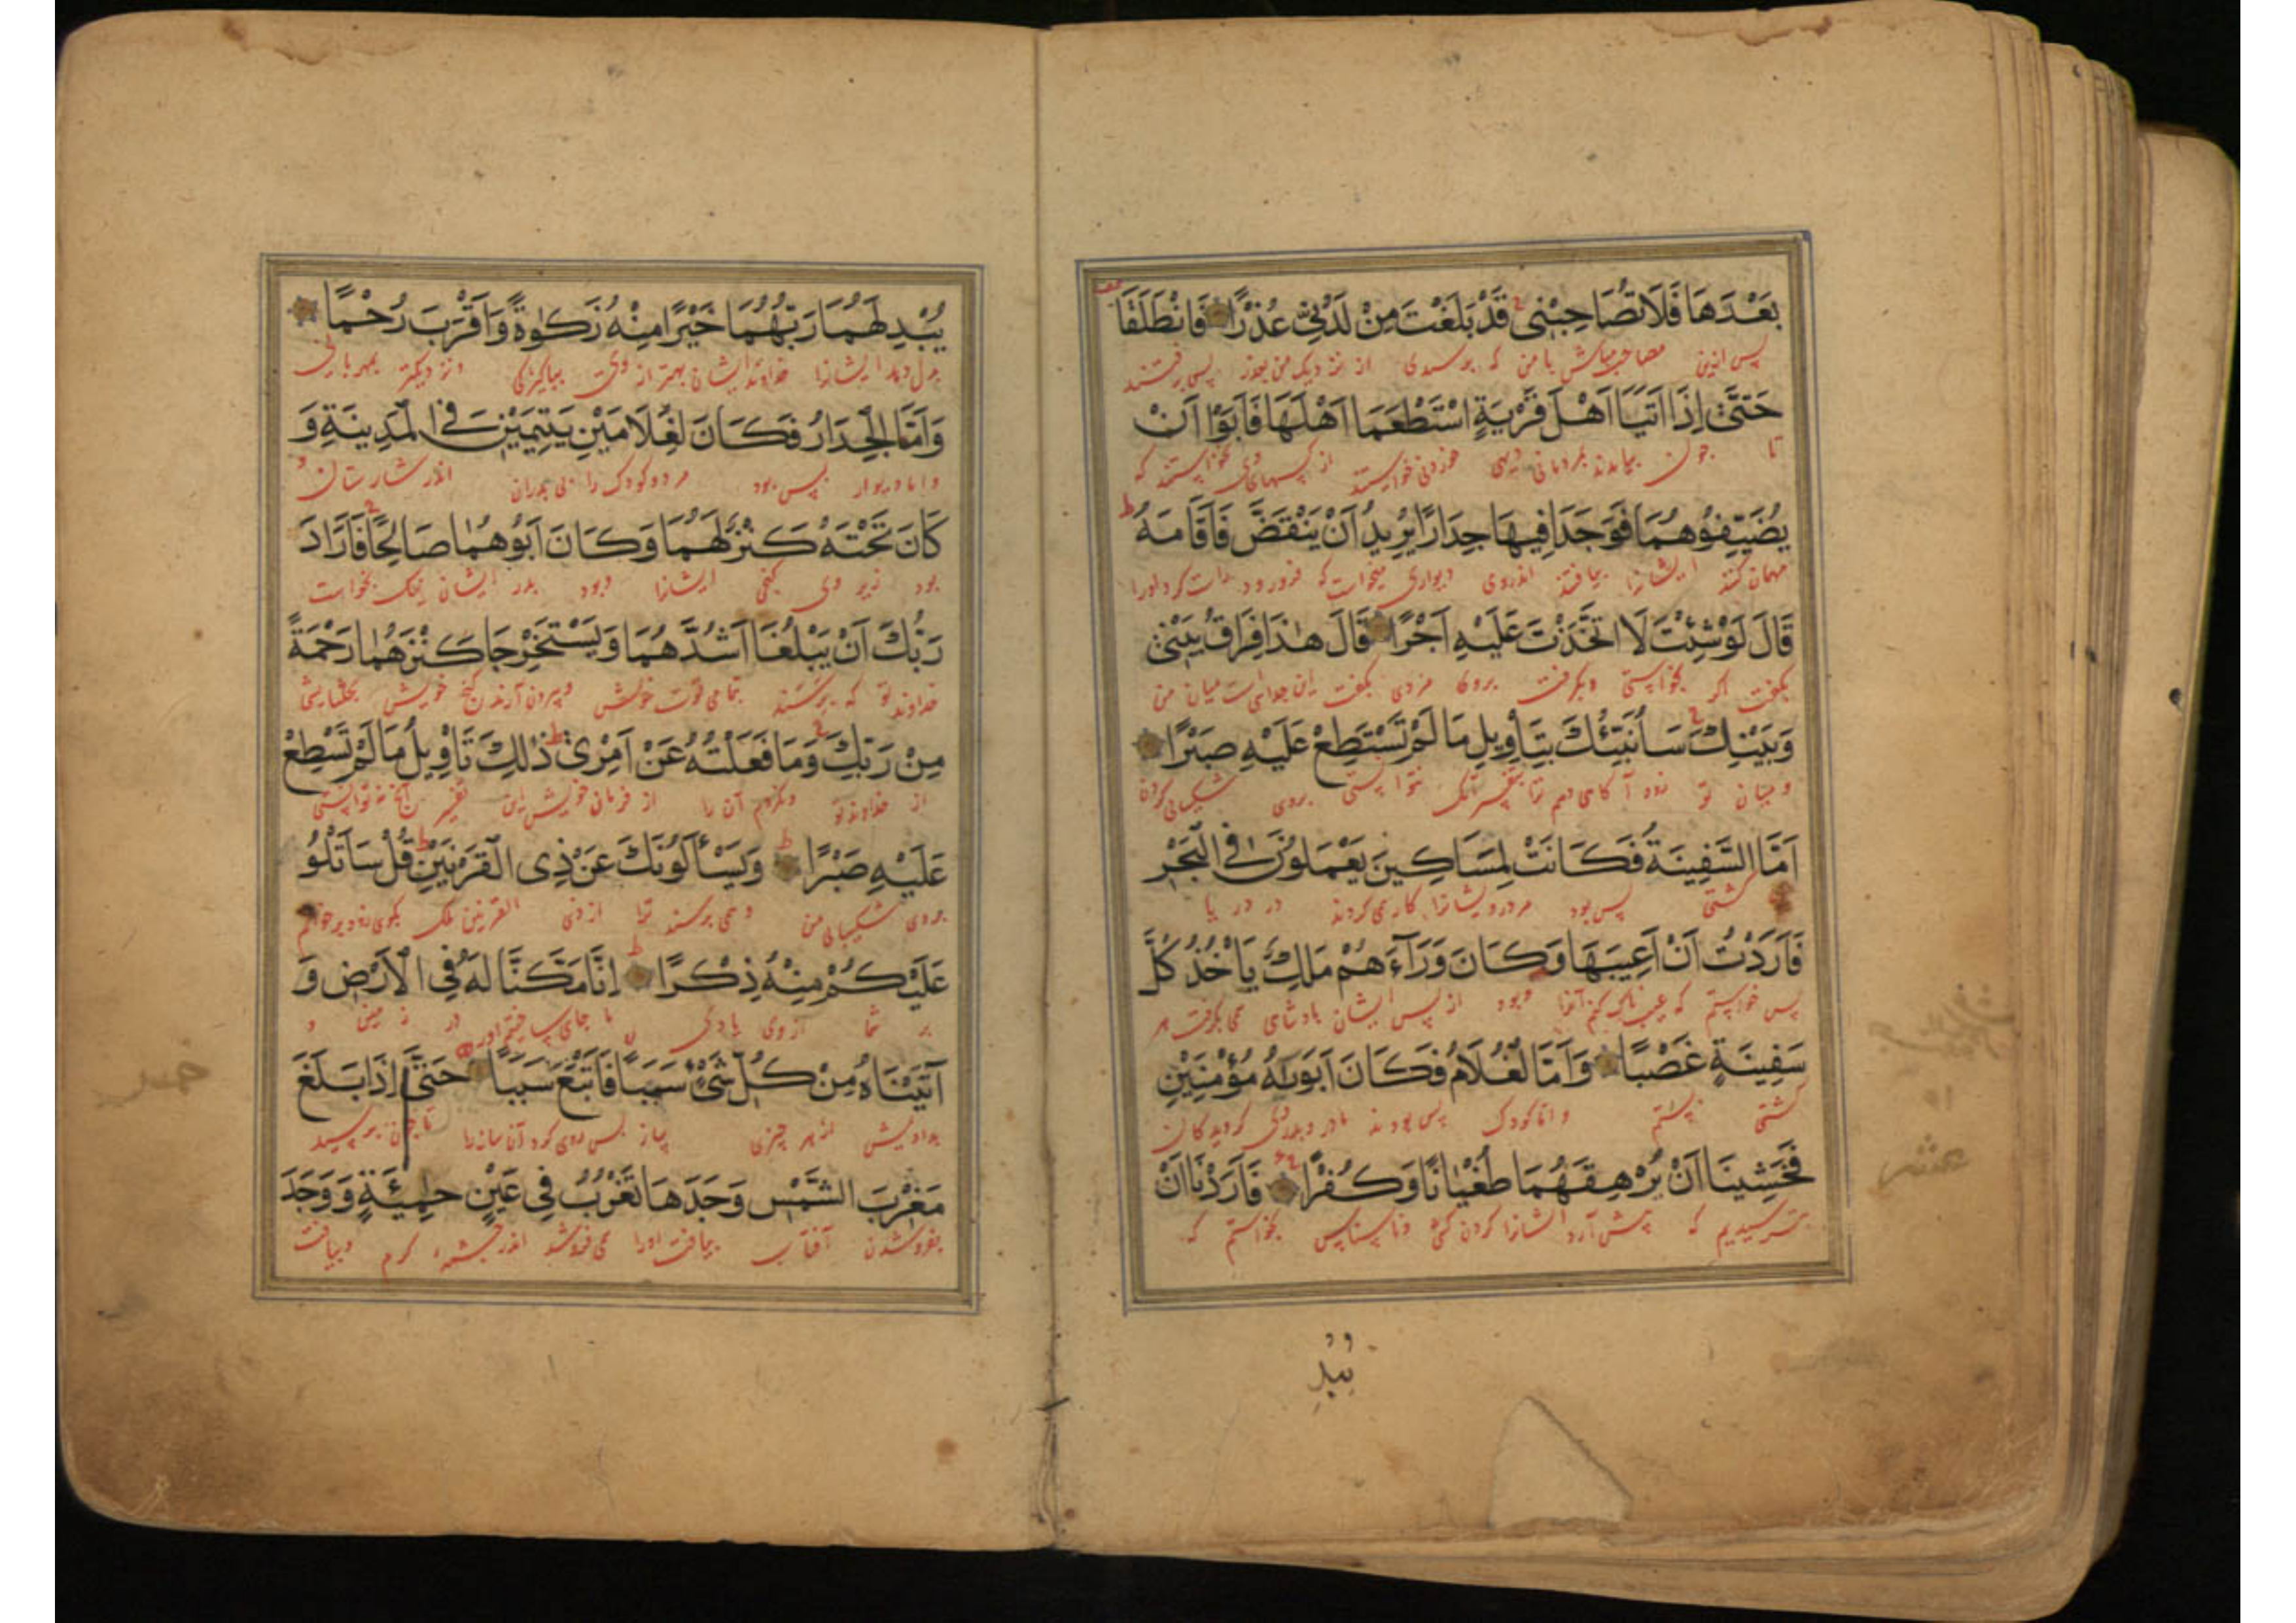 بَعْدَهَا فَلَا تُصَاحِبْنِي قَدْ بَلَغْتَ مِنْ لَدُنِّي عُذْرًا فَانْطَلَقَا
پس ازین مصاحب مباش با من که برسیدی از نزدیک من بعذر پس برفتند
حَتَّى إِذَا أَتَيَا أَهْلَ قَرْيَةٍ اسْتَطْعَمَا أَهْلَهَا فَأَبَوْا أَنْ
تا چون بیامدند بمردمانی دیهی خوردنی خواستند از نخواستند که
يُضَيِّفُوهُمَا فَوَجَدَا فِيهَا جِدَارًا يُرِيدُ أَنْ يَنْقَضَّ فَأَقَامَهُ
مهمان کنند ایشانرا بیافتند اندروی دیواری میخواست که فرورود راست کرد اورا
قَالَ لَوْ شِئْتَ لَاتَّخَذْتَ عَلَيْهِ أَجْرًا قَالَ هٰذَا فِرَاقُ بَيْنِي
بگفت اگر بخواستی بگرفت بروی مزدی بگفت این جدائیست میان من
وَبَيْنِكَ سَأُنَبِّئُكَ بِتَأْوِيلِ مَا لَمْ تَسْتَطِعْ عَلَيْهِ صَبْرًا
و میان تو زود آگاهی دهم ترا نتوانستی بروی شکیبائی کردن
أَمَّا السَّفِينَةُ فَكَانَتْ لِمَسَاكِينَ يَعْمَلُونَ فِي الْبَحْرِ
کشتی پس بود مردرویشانرا کار می کردند در دریا
فَأَرَدْتُ أَنْ أَعِيبَهَا وَكَانَ وَرَآءَهُمْ مَلِكٌ يَأْخُذُ كُلَّ
پس خواستم که عیب ناک کنم آنرا و بود از پس ایشان پادشاهی می بگرفت هر
سَفِينَةٍ غَصْبًا وَأَمَّا الْغُلَامُ فَكَانَ أَبَوَاهُ مُؤْمِنَيْنِ
کشتی بستم و اما کودک پس بودند مادر و پدر وی گرویدگان
فَخَشِينَا أَنْ يُرْهِقَهُمَا طُغْيَانًا وَكُفْرًا فَأَرَدْنَا أَنْ
بترسیدیم که پیش آرد ایشانرا کردن کشی و ناسپاسی بخواستم که
يُبْدِ
يُبْدِلَهُمَا رَبُّهُمَا خَيْرًا مِنْهُ زَكٰوةً وَأَقْرَبَ رُحْمًا
بدل دهد ایشانرا خداوند ایشان بهتر از وی بپاکیزگی و نزدیکتر بمهربانی
وَأَمَّا الْجِدَارُ فَكَانَ لِغُلَامَيْنِ يَتِيمَيْنِ فِي الْمَدِينَةِ وَ
و اما دیوار پس بود مر دو کودک را بی پدران اندر شارستان و
كَانَ تَحْتَهُ كَنْزٌ لَهُمَا وَكَانَ أَبُوهُمَا صَالِحًا فَأَرَادَ
بود زیر وی گنجی ایشانرا و بود پدر ایشان نیک بخواست
رَبُّكَ أَنْ يَبْلُغَا أَشُدَّهُمَا وَيَسْتَخْرِجَا كَنْزَهُمَا رَحْمَةً
خداوند تو که برسند بتمامی قوت خویش و بیرون آرند گنج خویش بخشایشی
مِنْ رَبِّكَ وَمَا فَعَلْتُهُ عَنْ أَمْرِي ذٰلِكَ تَأْوِيلُ مَا لَمْ تَسْطِعْ
از خداوند تو و نکردم آن را از فرمان خویش این تفسیر آنچ نتوانستی
عَلَيْهِ صَبْرًا وَيَسْأَلُونَكَ عَنْ ذِي الْقَرْنَيْنِ قُلْ سَأَتْلُو
بروی شکیبائی و می پرسند ترا از ذی القرنین ملک بگوی زود برخوانم
عَلَيْكُمْ مِنْهُ ذِكْرًا إِنَّا مَكَّنَّا لَهُ فِي الْأَرْضِ وَ
بر شما از وی یادی ما جای ساختیم اورا در زمین و
آتَيْنَاهُ مِنْ كُلِّ شَيْءٍ سَبَبًا فَأَتْبَعَ سَبَبًا حَتَّى إِذَا بَلَغَ
بدادیمش از هر چیزی پس روی کرد آن سازرا تا چون برسید
مَغْرِبَ الشَّمْسِ وَجَدَهَا تَغْرُبُ فِي عَيْنٍ حَمِئَةٍ وَوَجَدَ
بفروشدن آفتاب بیافت اورا می فروشد اندر چشمه گرم و بیافت